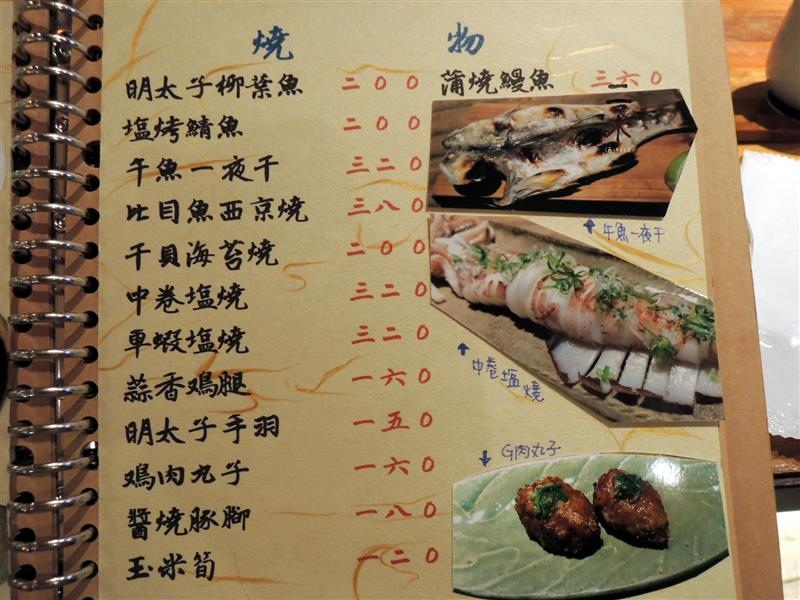 燒 物
明太子柳葉魚 二００
塩烤鯖魚 二００
午魚一夜干 三二０
比目魚西京燒 三八０
干貝海苔燒 二００
中卷塩燒 三二０
車蝦塩燒 三二０
蒜香鷄腿 一六０
明太子手羽 一五０
鷄肉丸子 一六０
醬燒豚腳 一八０
玉米筍 一二０
蒲燒鰻魚 三六０
午魚一夜干
中卷塩燒
G肉丸子